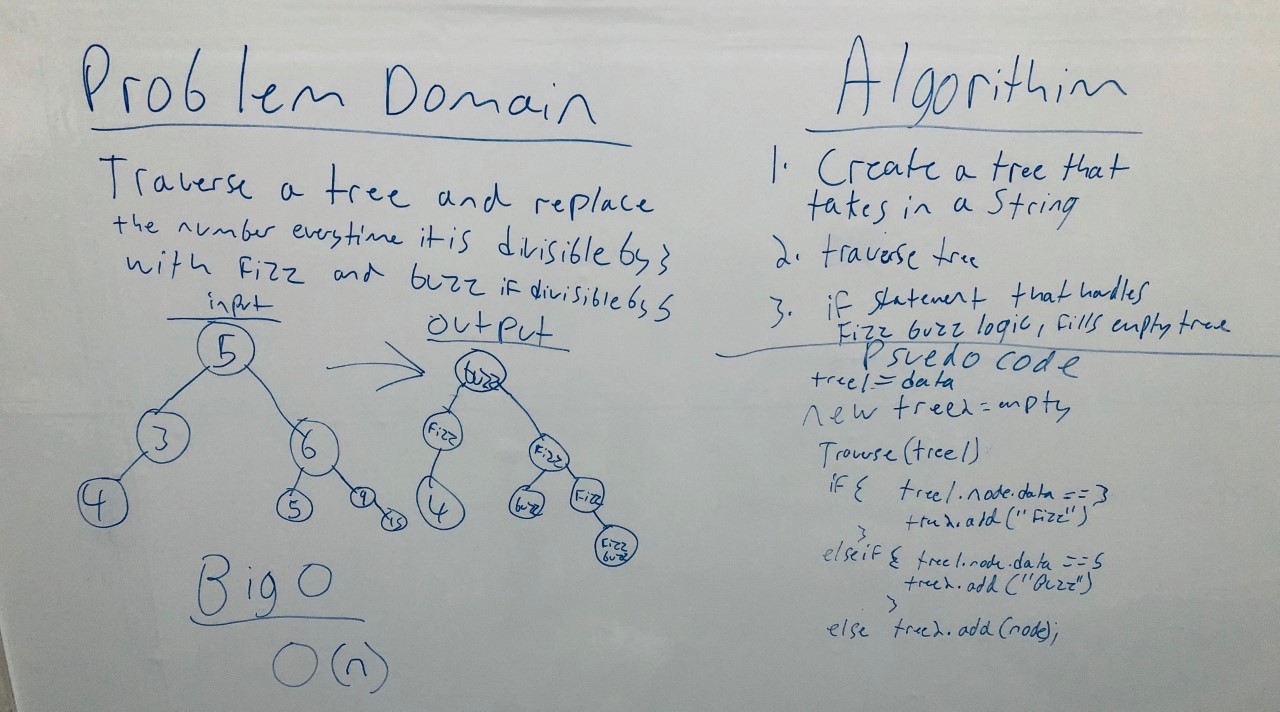 Problem Domain
Traverse a tree and replace
the number everytime it is divisible by 3
with Fizz and buzz if divisible by 5
input
5
3
6
4
5
9
15
output
buzz
Fizz
Fizz
4
buzz
Fizz
Fizz
buzz
Big O
O(n)
Algorithim
1. Create a tree that
takes in a String
2. traverse tree
3. if statement that handles
Fizz buzz logic, fills empty tree
Psuedo code
tree1 = data
new tree2 = empty
Traverse(tree1)
if { tree1.node.data == 3
tree2.add("Fizz")
}
else if { tree1.node.data == 5
tree2.add("Buzz")
}
else tree2.add(node);